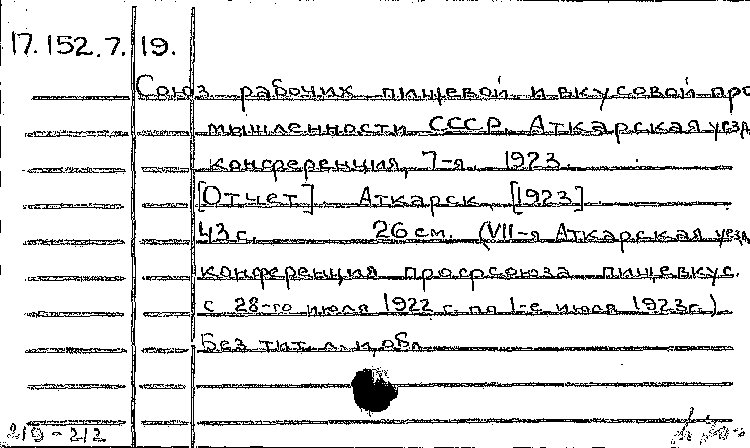 17.152.7. 19.
Союз рабочих пищевой и вкусовой про
мышленности СССР. Аткарская уезд
конференция, 7-я. 1923.
[Отчет]. Аткарск, [1923].
43 с. 26 см. (VII-я Аткарская уезд
конференция профсоюза пищевкус.
с 28-го июля 1922 г. по 1-е июля 1923 г.)
Без тит. л. и обл.
210-212